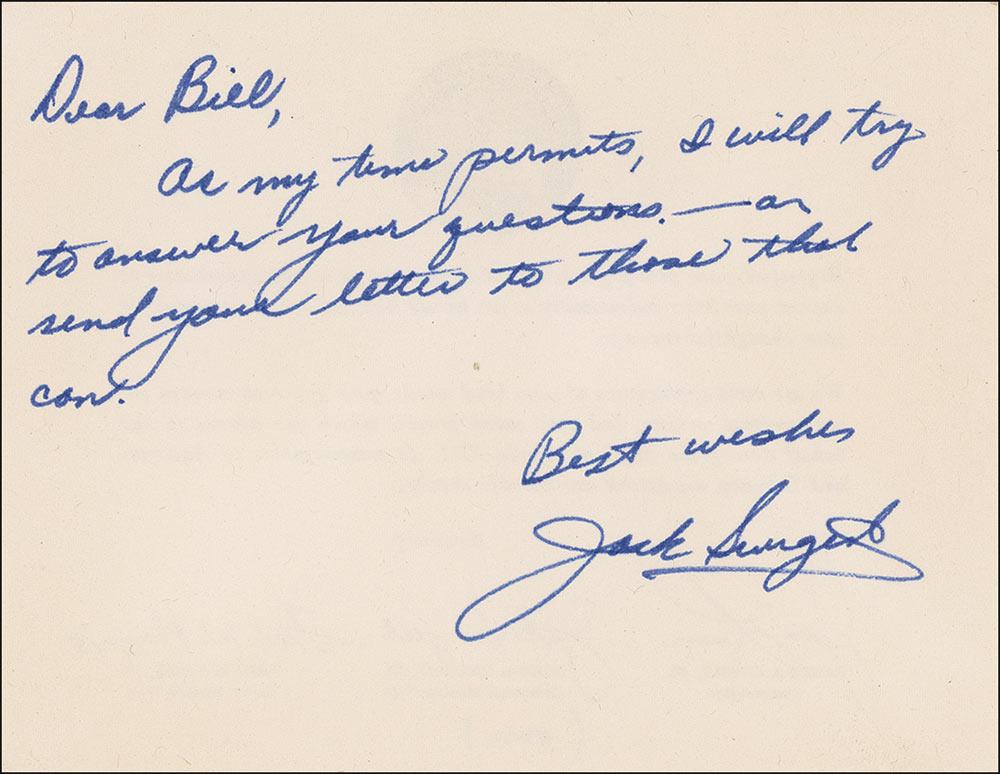 Dear Bill,
As my time permits, I will try
to answer your questions. — or
send your letter to those that
can.
Best wishes
Jack Swigert